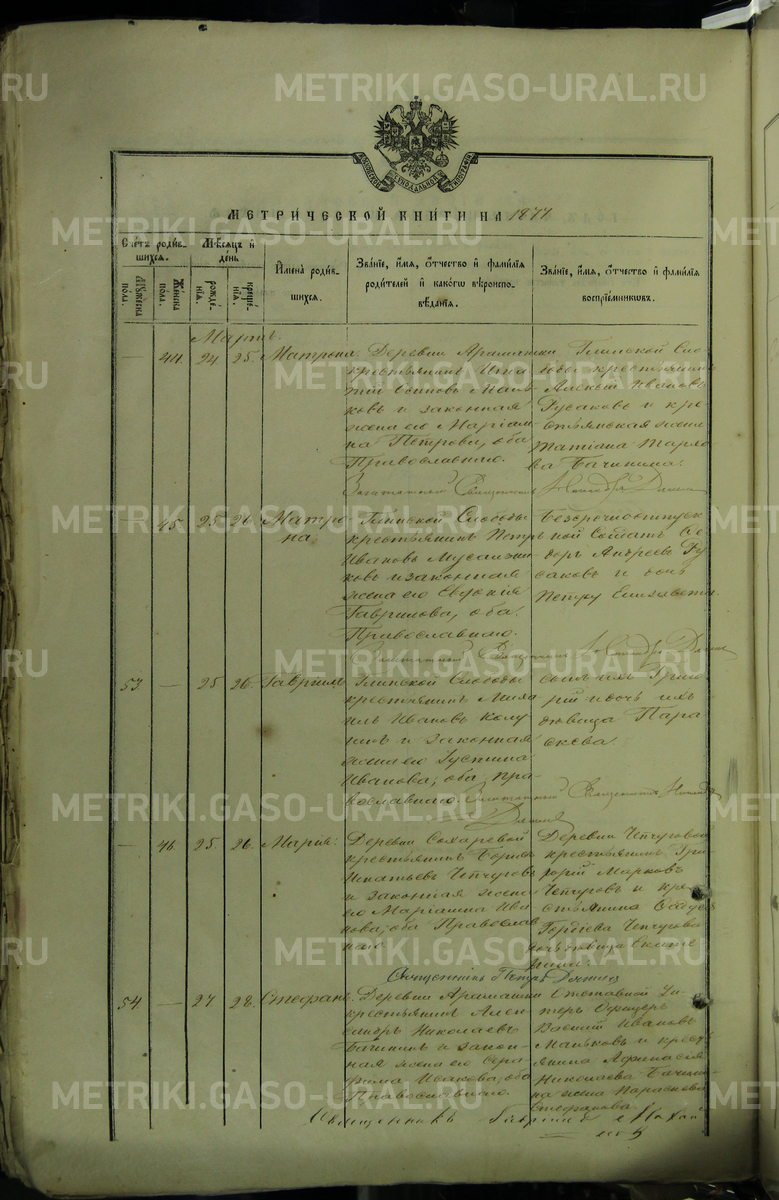 METRIKI.GASO-URAL.RU
МЕТРИ́ЧЕСКОЙ КНИ́ГИ НА 1877
Сче́тъ роди́в-
шихся.
Мѣ́сяцъ и҆
де́нь
И҆мена̀ роди́в-
шихся.
Зва́нїе, и҆́мя, ѻ҆́тчество и҆ фами́лїя
роди́телей и҆ како́гѡ вѣроиспо-
вѣ́данїя.
Зва́нїе, и҆́мя, ѻ҆́тчество и҆ фами́лїя
воспрїе́мникѡвъ.
Мужеска
пола.
Женска
пола.
рожде-
нїя.
креще-
нїя.
Мартъ.
— 44. 24 25. Матрона.
Деревни Арамашки
крестьянинъ Игна-
тій Осиповъ Мань-
ковъ и законная
жена его Маріам-
на Петрова, оба
Православные.
Глинской Сло-
боды крестьянинъ
Алексѣй Ивановъ
Русаковъ и кре-
стьянская жена
Татіана
Бачинина.
Заштатный Священникъ
— 45. 25 26. Матро-
на.
Глинской Слободы
крестьянинъ Петръ
Ивановъ
ковъ и законная
жена его Евдокія
Гаврилова, оба
Православные.
Безсрочноотпуск-
ной Солдатъ
Андреевъ Ру-
саковъ и дочь
Петру Елизавета.
Заштатный Священникъ
53. — 25 26. Гавріилъ
Глинской Слободы
крестьянинъ Миха-
илъ Ивановъ Колу-
нинъ и законная
жена его Іустина
Иванова, оба пра-
вославные.
сынъ ихъ Григо-
рій и дочь ихъ
дѣвица Пара-
скева.
Заштатный Священникъ
— 46. 25. 26. Марія.
Деревни Сохаревой
крестьянинъ Борисъ
Игнатьевъ Чепчуговъ
и законная жена
его Маріамна Ива-
нова, оба Православ-
ные.
Деревни Чепчуговой
крестьянинъ Гри-
горій Марковъ
Чепчуговъ и кре-
стьянина
Гордѣева Чепчугова
дочь дѣвица Екате-
рина.
Священникъ Петръ
54. — 27 28. Стефанъ.
Деревни Арамашки
крестьянинъ Алек-
сандръ Николаевъ
Бачининъ и закон-
ная жена его Сера-
фима Иванова, оба
Православные.
Отставной Ун-
теръ Офицеръ
Василій Ивановъ
Маньковъ и крест-
янина Афанасія
Николаева Бачини-
на жена Параскева
Стефанова.
Священникъ Гавріилъ